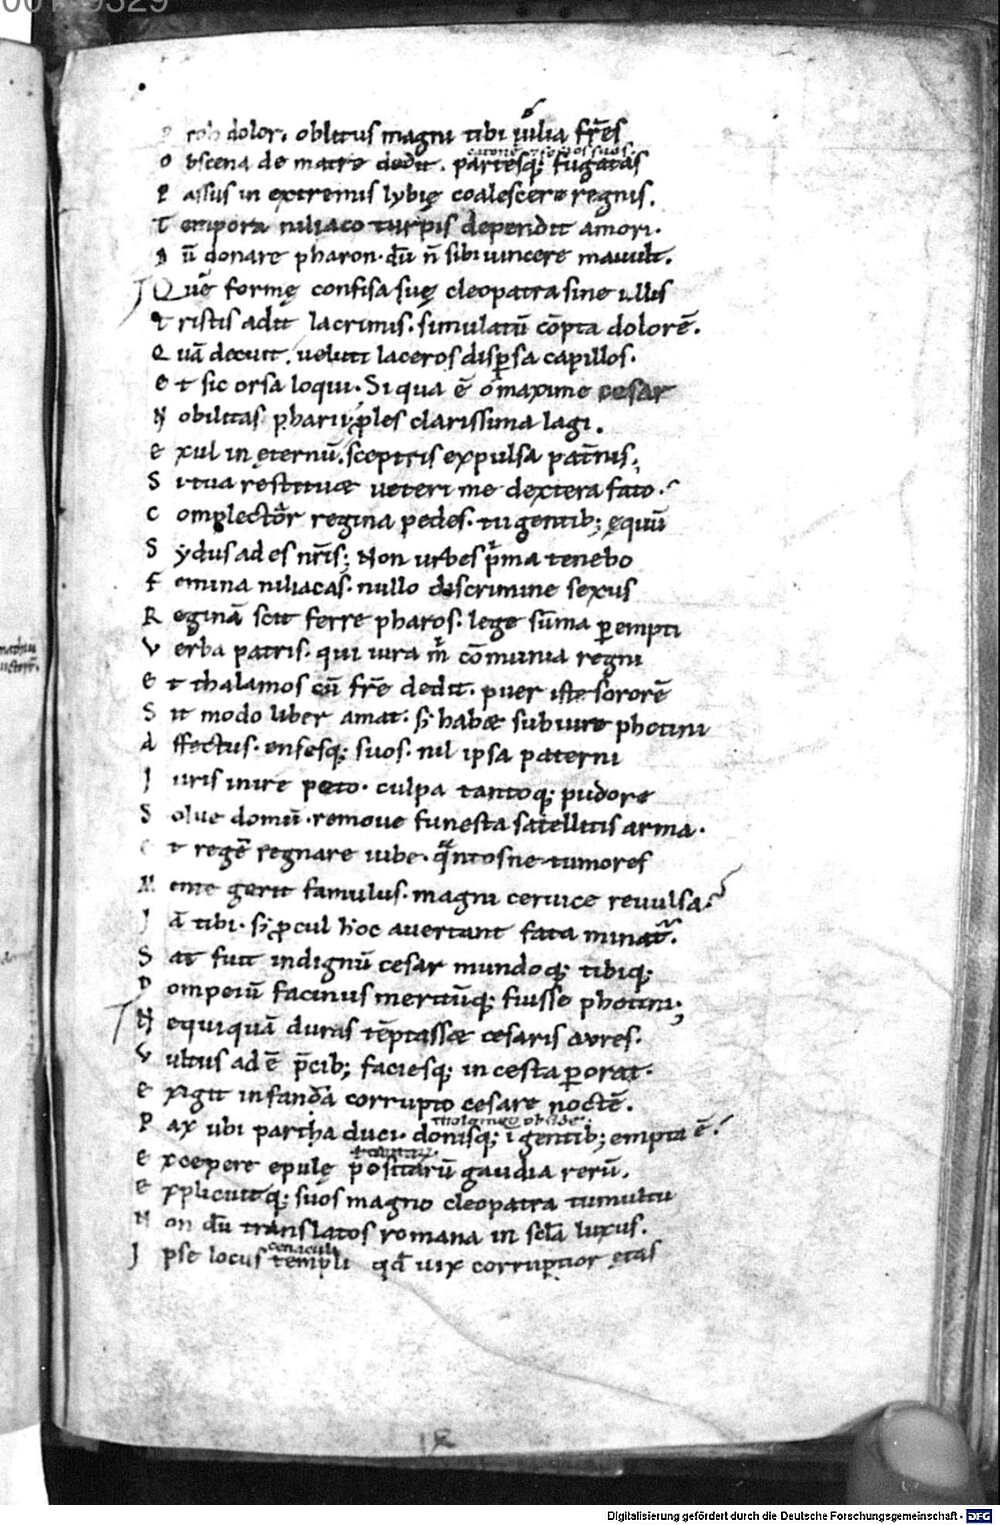 Proh dolor. oblitus magni tibi iulia fr̄es
catonē
Obscena de matre dedit. partesq; fugatas
Passus in extremis lybię coalescere regnis.
Tempora niliaco turpis dependit amori.
Dū donare pharon. dū n̄ sibi uincere mauult.
Quē formę confisa suę cleopatra sine ullis
Tristis adit lacrimis. simulatū cōpta dolorē.
Quā decuit. ueluti laceros disp̱sa capillos.
Et sic orsa loqui. Si qua ē o maxime cesar
Nobilitas pharii p̱les clarissima lagi.
Exul in ęternū. sceptris expulsa pat̄nis.
Si tua restituæ ueteri me dextera fato.
Complector regina pedes. tu gentib; ęquū
Sydus ad es nr̄is; Non urbes p̄ma tenebo
Femina niliacas. nullo discrimine sexus
Reginā scit ferre pharos. lege sūma p̱empti
Verba patris. qui iura m̄ cōmunia regni
Et thalamos cū fr̄e dedit. puer iste sororē
Sit modo liber amat. s; habæ sub iure photini
Affectus. ensesq; suos. nil ipsa paterni
Iuris inire peto. culpa tantoq; pudore
Solue domū. remoue funesta satellitis arma.
Et regē regnare iube. q̄ntosne tumores
Mente gerit famulus. magni ceruice reuulsa
Iā tibi. s; p̱cul hoc auertant fata minat̄.
Sat fuit indignū cesar mundoq; tibiq;
Pompeiū facinus meritūq; fuisse photini;
Nequiquā duras tēptassæ cesaris aures.
Vultus ad ē p̄cib; faciesq; incesta p̱orat.
Exigit infandā corrupto cesare noctē.
tholomeo
Pax ubi parta duci. donisq; īgentib; empta ē.
Excepere epulę positarū gaudia rerū.
Explicuitq; suos magno cleopatra tumultu
Non dū translatos romana in scl̄a luxus.
cenaculi
Ipse locus templi qd̄ uix corruptior ętas
Digitalisierung gefördert durch die Deutsche Forschungsgemeinschaft - DFG